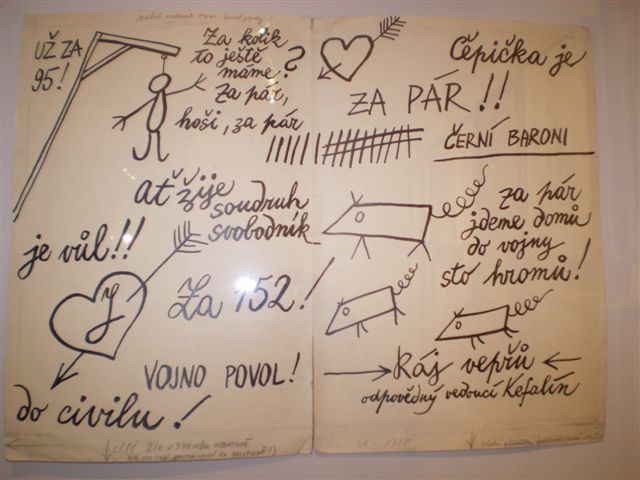 UŽ ZA
95!
Za kolik
to ještě
máme?
za pár,
hoši, za pár
ať žije
soudruh
svobodník
je vůl!!
J
Za 152!
VOJNO POVOL!
do civilu!
Čepička je
ZA PÁR!!
ČERNÍ BARONI
za pár
jdeme domů
do vojny
sto hromů!
Ráj vepřů
odpovědný vedoucí Kefalín